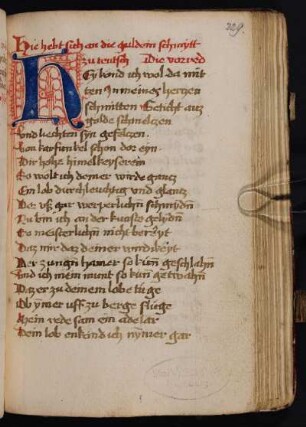 229.
Hie hebt sich an die guldein schmytt
zu teutsch Die vorred
Ey kond ich wol da mit
ten In meines hertzen
schmitten Geticht auß
golde schmeltzen
Vnd liechten syn gefeltzen
Von karfunkel schon dor eyn
Dir hohe himelkeyserein
So wolt ich deiner wirde gantz
Ein lob durchleuchtig vnd glantz
Der vß gar
Nu bin ich an der kunste
So meisterlichn nicht
Daz mir daz deiner wirdikeyt
Der zungen hamer so kun geschlahn
Vnd ich mein munt so kun getwahn
Daz er zu deinem lobe tüge
Ob ymer uff zu berge fliege
Mein rede sam ein adelar
Dein lob enkund ich nymer gar